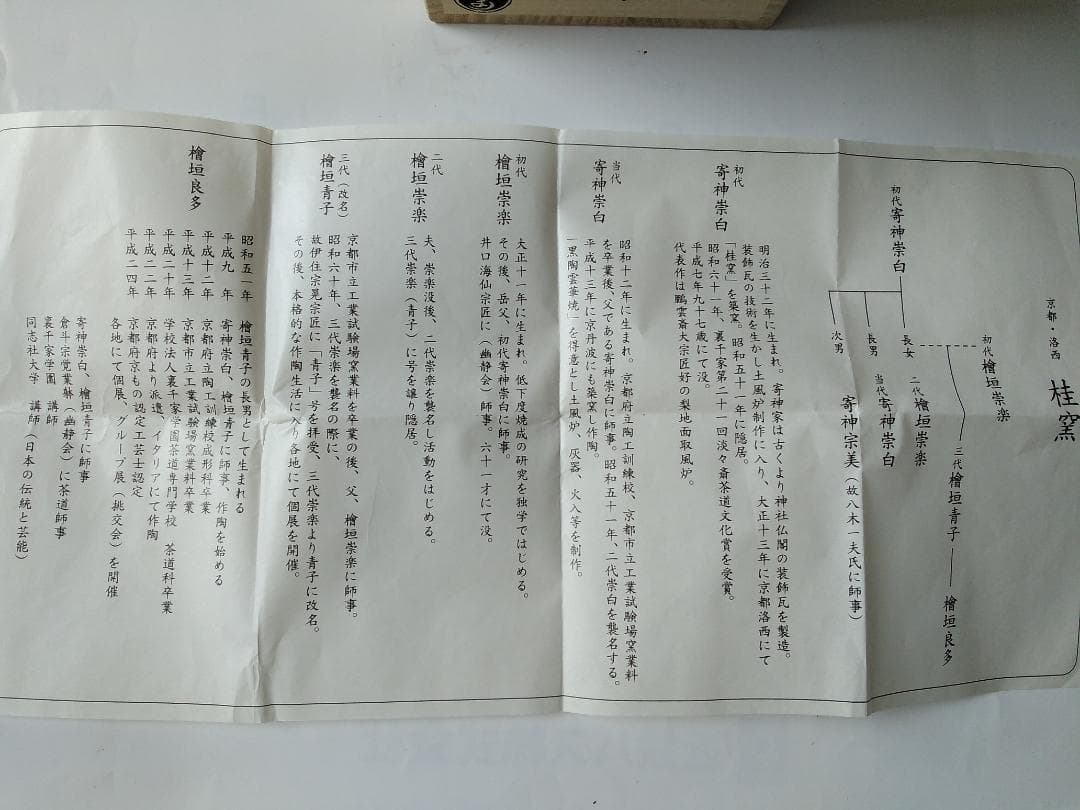 京都・洛西
桂窯
初代 檜垣崇楽
三代 檜垣青子
檜垣良多
初代 寄神崇白
長女
二代 檜垣崇楽
長男
当代 寄神崇白
次男
寄神宗美(故八木一夫氏に師事)
初代
寄神崇白
明治三十二年に生まれ。寄神家は古くより神社仏閣の装飾瓦を製造。
装飾瓦の技術を生かし土風炉制作に入り、大正十三年に京都洛西にて
「桂窯」を築窯。昭和五十一年に隠居。
昭和六十一年、裏千家第二十一回淡々斎茶道文化賞を受賞。
平成七年九十七歳にて没。
代表作は鵬雲斎大宗匠好の梨地面取風炉。
当代
寄神崇白
昭和十二年に生まれ。京都府立陶工訓練校、京都市立工業試験場窯業科
を卒業後、父である寄神崇白に師事。昭和五十一年、二代崇白を襲名する。
平成十三年に京丹波にも築窯し作陶。
「黒陶雲華焼」を得意とし土風炉、灰器、火入等を制作。
初代
檜垣崇楽
大正十一年に生まれ。低下度焼成の研究を独学ではじめる。
その後、岳父、初代寄神崇白に師事。
井口海仙宗匠に(幽静会)師事。六十一才にて没。
二代
檜垣崇楽
夫、崇楽没後、二代崇楽を襲名し活動をはじめる。
三代崇楽(青子)に号を譲り隠居。
三代(改名)
檜垣青子
京都市立工業試験場窯業科を卒業の後、父、檜垣崇楽に師事。
昭和六十年、三代崇楽を襲名の際に、
故伊住宗晃宗匠に「青子」号を拝受、三代崇楽より青子に改名。
その後、本格的な作陶生活に入り各地にて個展を開催。
檜垣良多
昭和五一年 檜垣青子の長男として生まれる
平成九 年 寄神崇白、檜垣青子に師事、作陶を始める
平成十二年 京都府立陶工訓練校成形科卒業
平成十三年 京都市立工業試験場窯業科卒業
平成二十年 学校法人裏千家学園茶道専門学校 茶道科卒業
平成二二年 京都府より派遣、イタリアにて作陶
平成二四年 京都府京もの認定工芸士認定
各地にて個展、グループ展(挑交会)を開催
寄神崇白、檜垣青子に師事
倉斗宗覚業躰(幽静会)に茶道師事
裏千家学園 講師
同志社大学 講師(日本の伝統と芸能)